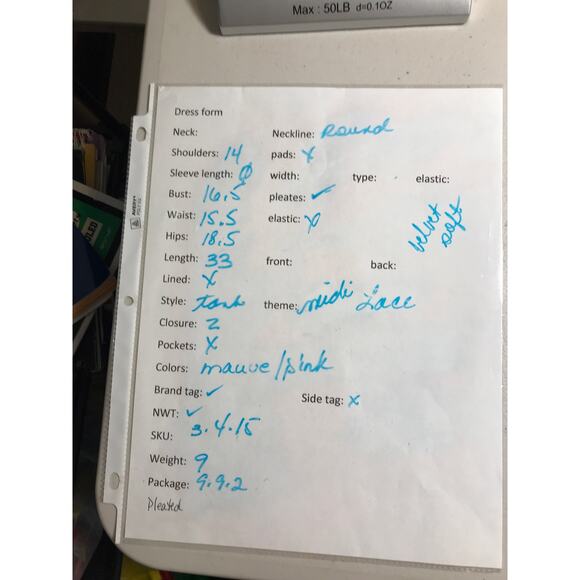 Max : 50LB d=0.1OZ
Dress form
Neck: Neckline: Round
Shoulders: 14 pads: X
Sleeve length: Ø width: type: elastic:
Bust: 16.5 pleates: ✓
Waist: 15.5 elastic: X
velvet soft
Hips: 18.5
Length: 33 front: back:
Lined: X
Style: tank theme: midi Lace
Closure: Z
Pockets: X
Colors: mauve/pink
Brand tag: ✓ Side tag: X
NWT: ✓
SKU: 3.4.15
Weight: 9
Package: 9.9.2
Pleated